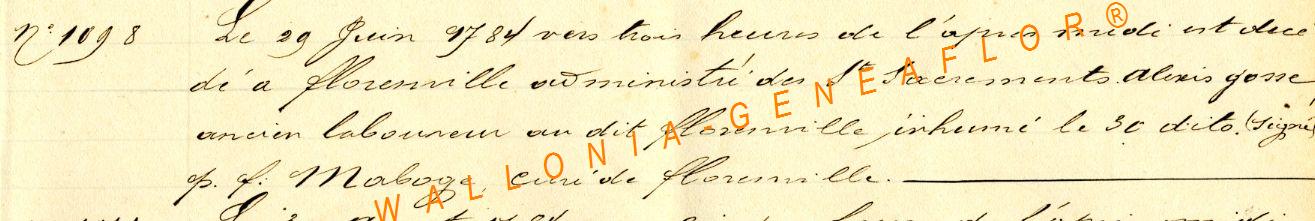 N° 1098 Le 29 Juin 1784 vers trois heures de l'apres midi est dece
dé a florenville administré des Sts Sacrements alexis gosse
ancien laboureur au dit florenville, inhumé le 30 dito. (Signé)
p. f. Maboge, curé de florenville.
WALLONIA-GENEAFLOR®